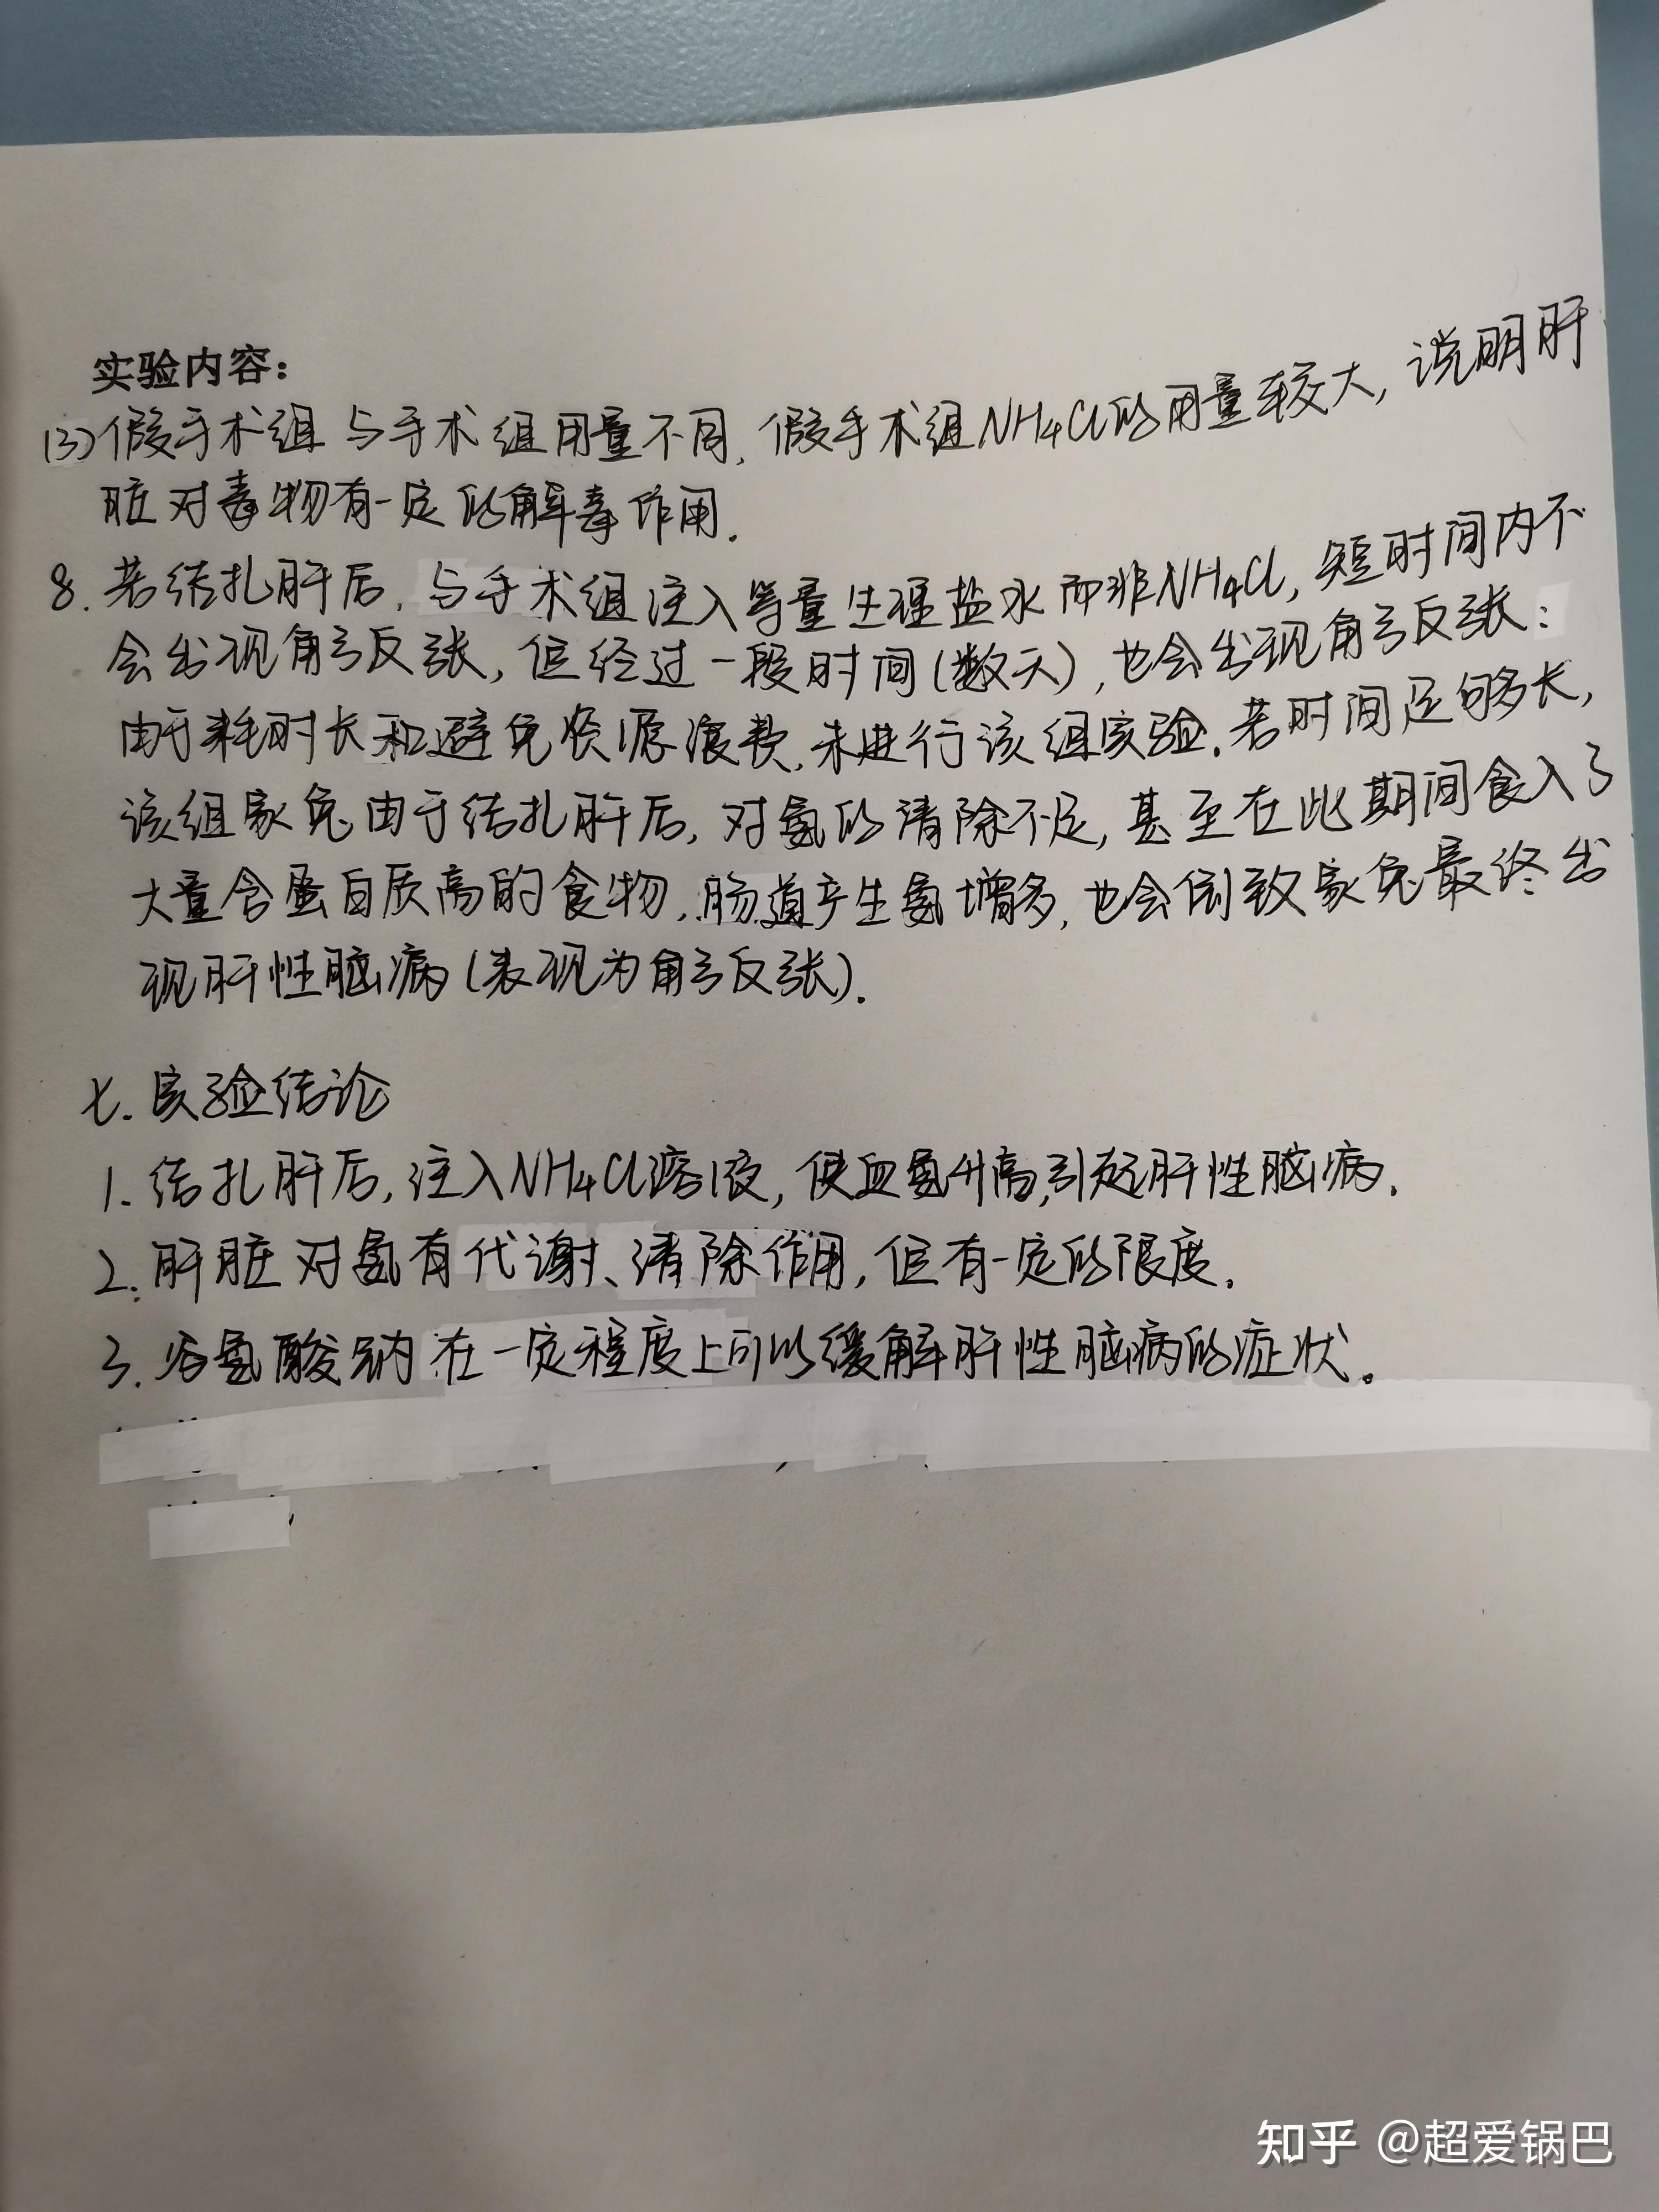 实验内容：
(3)假手术组与手术组用量不同，假手术组NH4Cl的用量较大，说明肝
脏对毒物有一定的解毒作用.
8.若结扎肝后，与手术组注入等量生理盐水而非NH4Cl，短时间内不
会出现角弓反张，但经过一段时间(数天)，也会出现角弓反张：
由于耗时长和避免资源浪费，未进行该组实验.若时间足够长，
该组家兔由于结扎肝后，对氨的清除不足，甚至在此期间食入了
大量含蛋白质高的食物，肠道产生氨增多，也会倒致家兔最终出
现肝性脑病(表现为角弓反张).
七.实验结论
1.结扎肝后，注入NH4Cl溶液，使血氨升高，引起肝性脑病.
2.肝脏对氨有代谢、清除作用，但有一定的限度.
3.谷氨酸钠在一定程度上可以缓解肝性脑病的症状。
知乎 @超爱锅巴